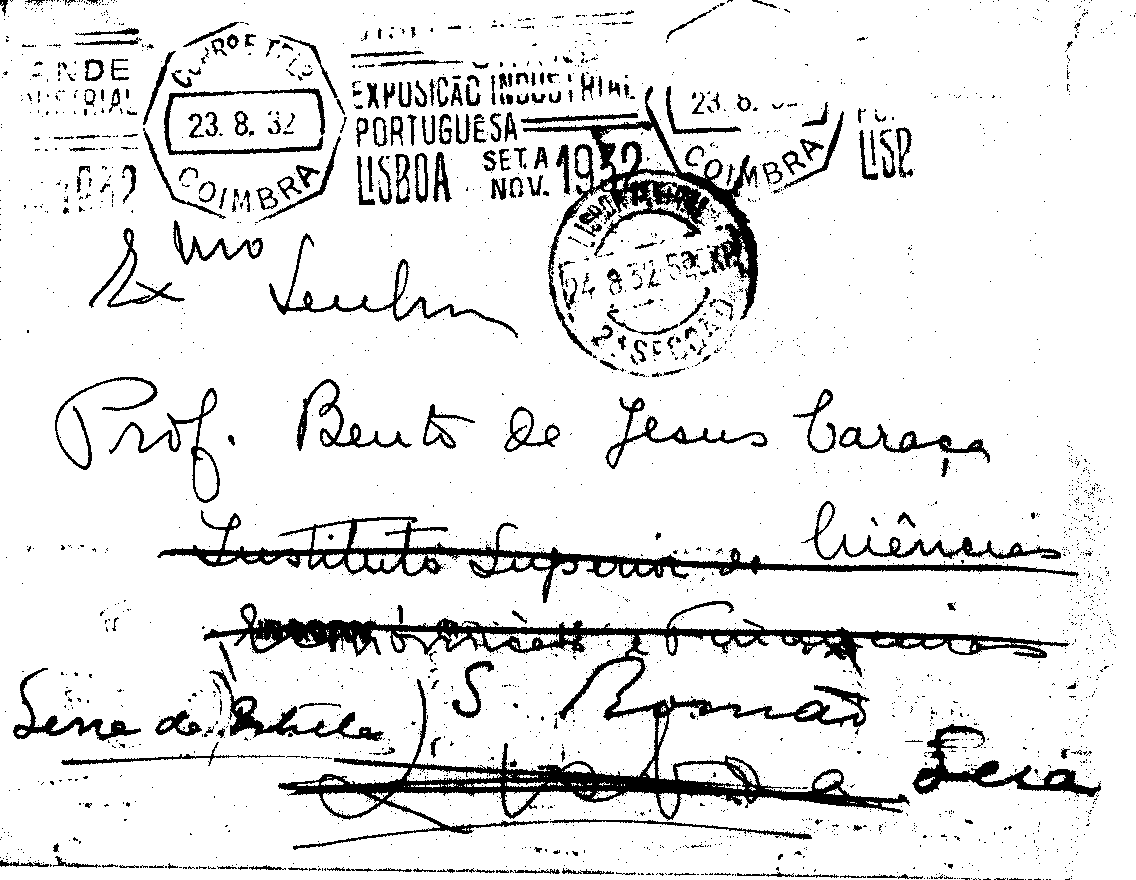 ANDE
USTRIAL
1932
CORRO E TELP
23. 8. 32
COIMBRA
EXPOSIÇÃO INDUSTRIAL
PORTUGUESA
LISBOA SET. A NOV. 1932
23. 8.
COIMBRA
LISB
24 8 32
2ª SECÇÃO
Exmo Senhor
Prof. Bento de Jesus Caraça
Instituto Superior de Ciências
Económicas e Financeiras
Serra da Estrela) S Romão
Lisboa Seia